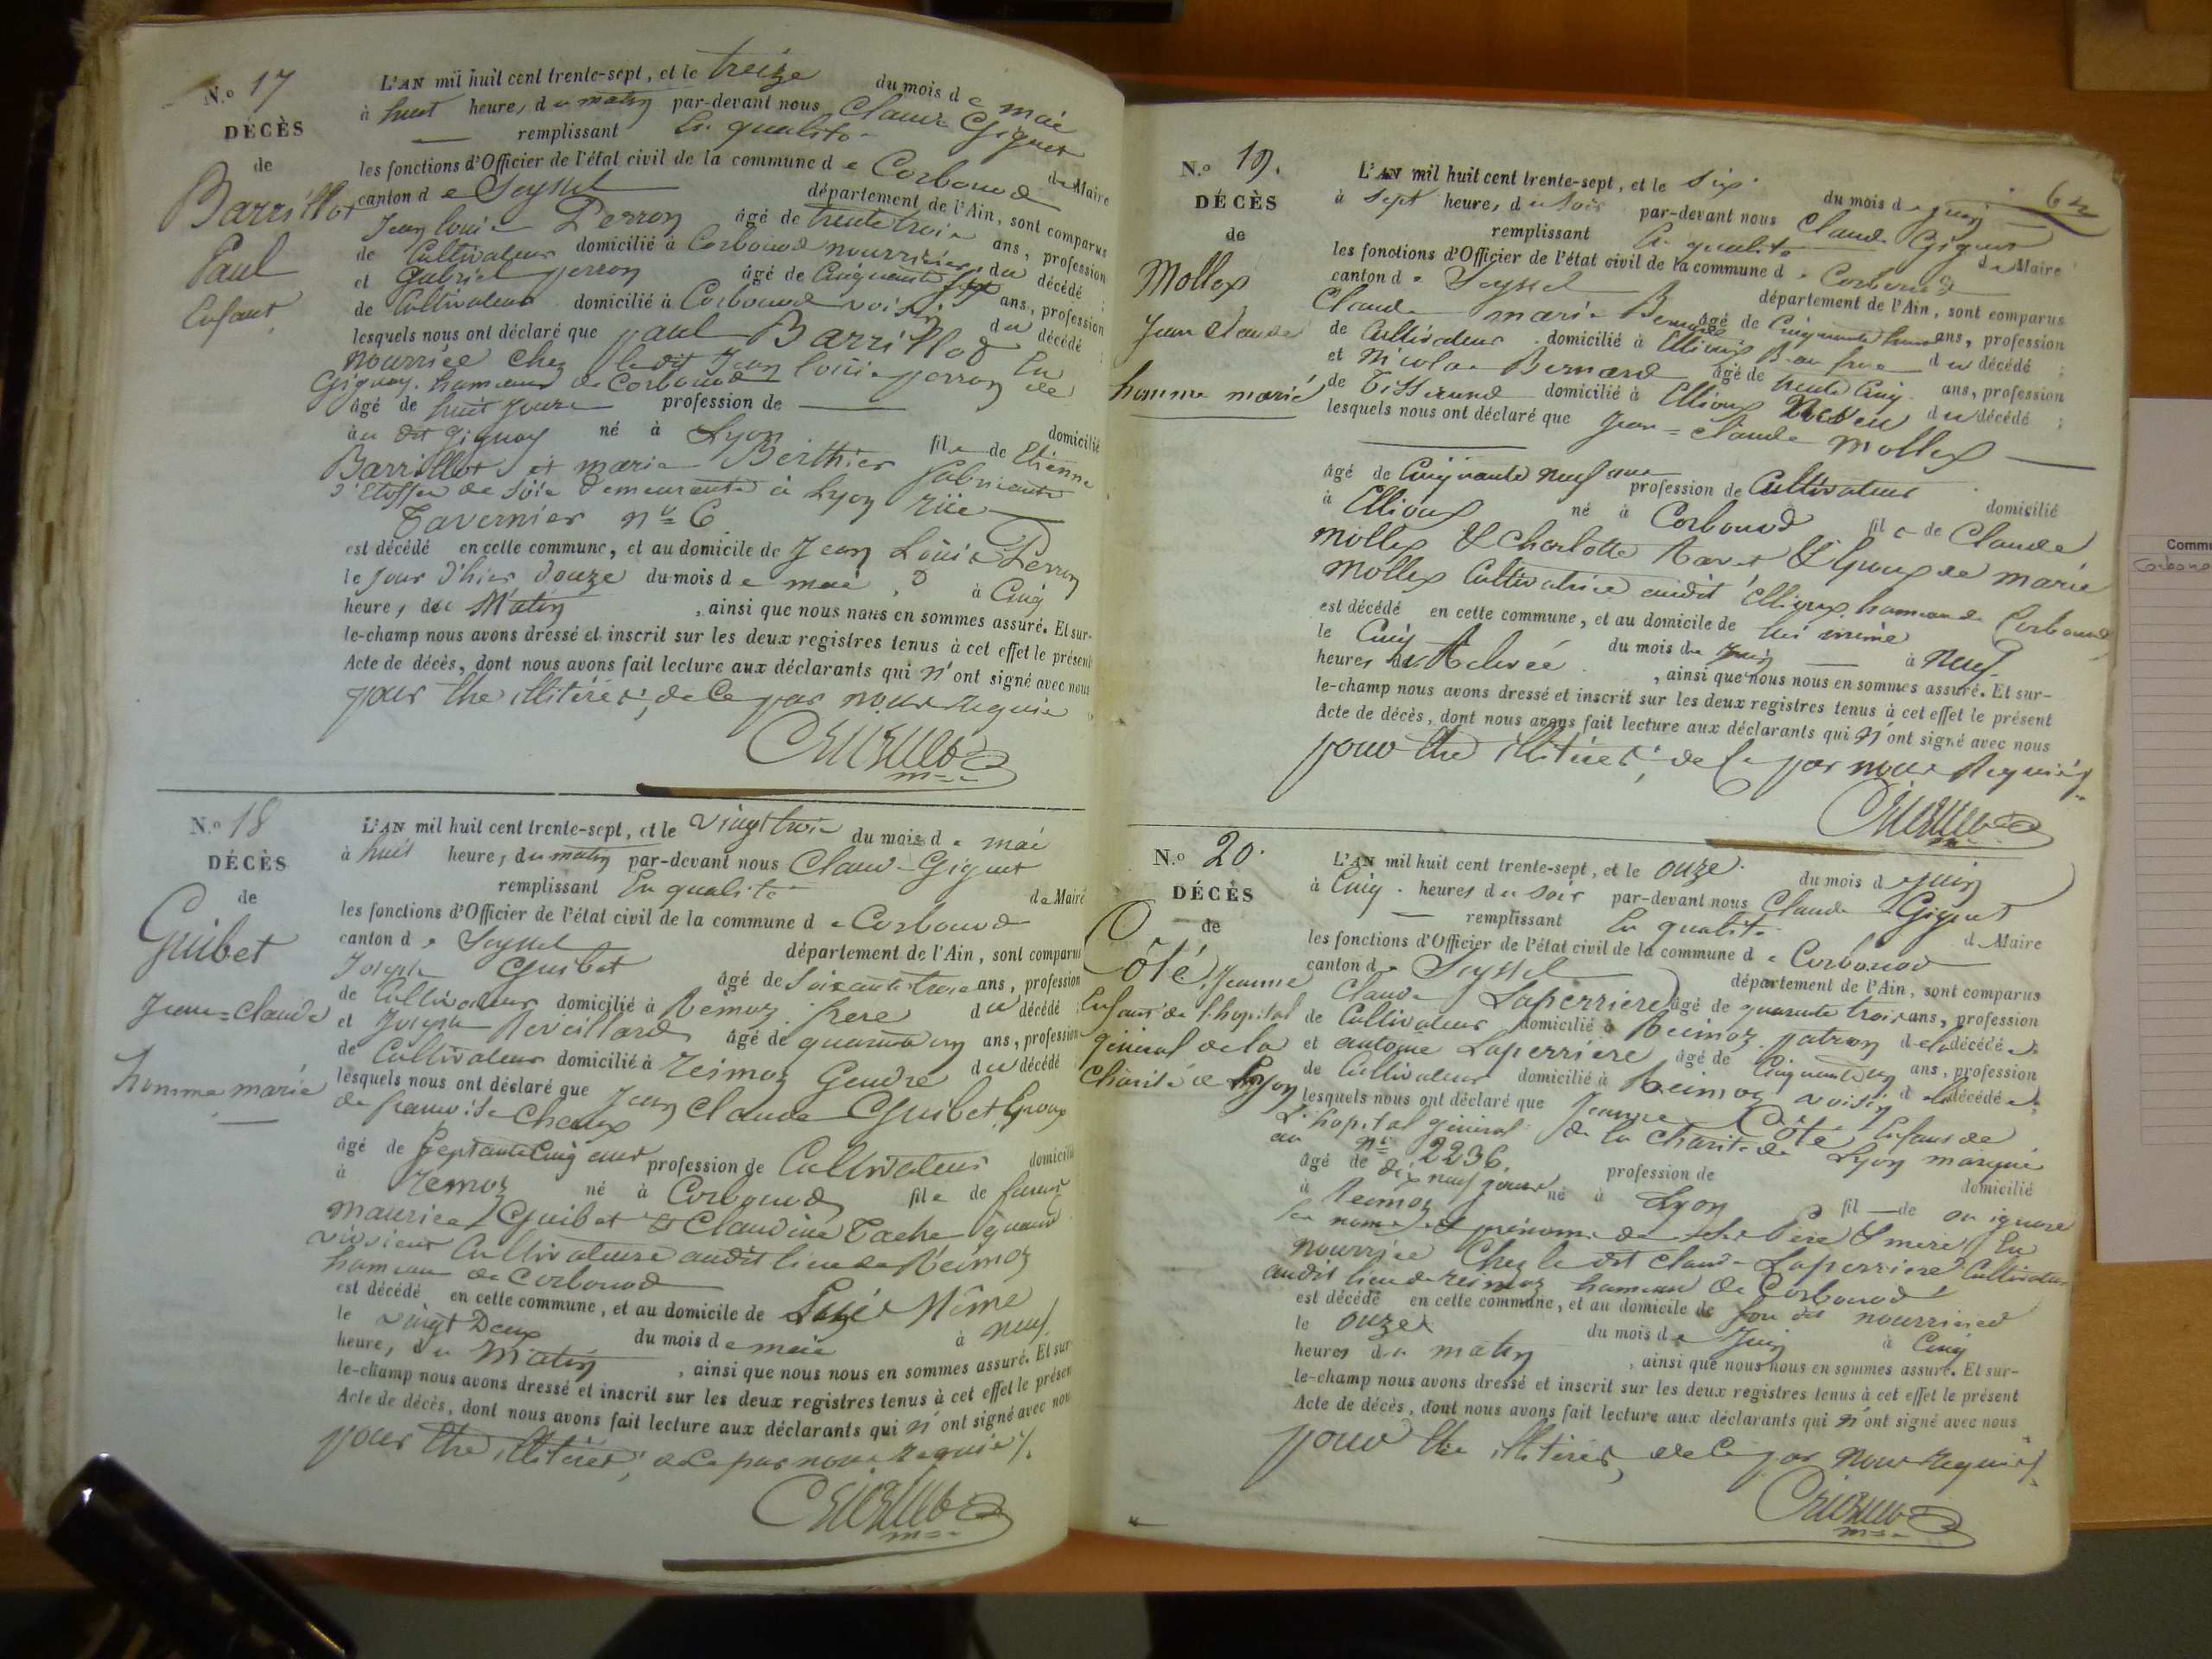 N.o 17
DÉCÈS
de
Barrillot
Paul
Enfant
L'AN mil huit cent trente-sept, et le treize du mois de mai
à huit heures du matin par-devant nous Claude Giguet
remplissant En qualité de Maire
les fonctions d'Officier de l'état civil de la commune de Corbonod
canton de Seyssel département de l'Ain, sont comparus
Jean louis Perron âgé de trente trois ans, profession
de Cultivateur domicilié à Corbonod nourricier du décédé ;
et Gabriel perron âgé de Cinquante sept ans, profession
de Cultivateur domicilié à Corbonod voisin du décédé ;
lesquels nous ont déclaré que paul Barrillot En
nourrice chez le dit Jean louis perron de
Gignay hameau de Corbonod
âgé de huit jours profession de — domicilié
au dit Gignay né à Lyon fils de Etienne
Barrillot et marie Berthier fabricants
d'Etoffes de Soie demeurants à Lyon rüe
Tavernier no 6
est décédé en cette commune, et au domicile de Jean Louis Perron
le jour d'hier douze du mois de mai, à Cinq
heures du Matin, ainsi que nous nous en sommes assuré. Et sur-
le-champ nous avons dressé et inscrit sur les deux registres tenus à cet effet le présent
Acte de décès, dont nous avons fait lecture aux déclarants qui n'ont signé avec nous
pour être illitérés, de ce par nous requis
N.o 18
DÉCÈS
de
Guibet
Jean=claude
homme marié
L'AN mil huit cent trente-sept, et le vingt trois du mois de mai
à huit heures du matin par-devant nous Claude Giguet
remplissant En qualité de Maire
les fonctions d'Officier de l'état civil de la commune de Corbonod
canton de Seyssel département de l'Ain, sont comparus
Joseph Guibet âgé de Soixante trois ans, profession
de Cultivateur domicilié à Rémoz frere du décédé
et Joseph Reveillard âgé de quarante un ans, profession
de Cultivateur domicilié à reimoz Gendre du décédé
lesquels nous ont déclaré que Jean Claude Guibet Epoux
de francoise Chenex
âgé de Septante Cinq ans profession de Cultivateur domicilié
à remoz né à Corbonod fils de feux
maurice Guibet & Claudine Tache quand
vivoient Cultivateurs audit lieu de Reimoz
hameau de Corbonod
est décédé en cette commune, et au domicile de Lui Même
le vingt Deux du mois de mai à neuf
heures du Matin, ainsi que nous nous en sommes assuré. Et sur
le-champ nous avons dressé et inscrit sur les deux registres tenus à cet effet le présen
Acte de décès, dont nous avons fait lecture aux déclarants qui n'ont signé avec nou
pour être illitérés, de ce par nous requis
N.o 19.
DÉCÈS
de
Mollex
Jean Claude
homme marié
L'AN mil huit cent trente-sept, et le Six du mois de juin
à Sept heures du Soir par-devant nous Claude Giguet
remplissant En qualité de Maire
les fonctions d'Officier de l'état civil de la commune de Corbonod
canton de Seyssel département de l'Ain, sont comparus
Claude marie Bernard âgé de Cinquante huit ans, profession
de Cultivateur domicilié à Ellioux Beau frere du décédé ;
et Nicolas Bernard âgé de trente Cinq ans, profession
de Tisserand domicilié à Ellioux Neveu du décédé ;
lesquels nous ont déclaré que Jean=claude Mollex
âgé de Cinquante neuf ans profession de Cultivateur domicilié
à Ellioux né à Corbonod fils de Claude
mollex & charlotte Ravet & Epoux de marie
mollex Cultivatrice audit Ellioux hameau de Corbonod
est décédé en cette commune, et au domicile de lui même
le Cinq du mois de juin à neuf
heures, ainsi que nous nous en sommes assuré. Et sur-
le-champ nous avons dressé et inscrit sur les deux registres tenus à cet effet le présent
Acte de décès, dont nous avons fait lecture aux déclarants qui n'ont signé avec nous
pour être illitérés, de ce par nous requis
N.o 20.
DÉCÈS
de
Côte Jeanne
Enfant de l'hopital
général de la
Charité de Lyon
L'AN mil huit cent trente-sept, et le onze du mois de juin
à Cinq heures du soir par-devant nous Claude Giguet
remplissant En qualité de Maire
les fonctions d'Officier de l'état civil de la commune de Corbonod
canton de Seyssel département de l'Ain, sont comparus
Claude Laperriere âgé de quarante trois ans, profession
de Cultivateur domicilié à Reimoz patron de la décédée ;
et antoine Laperriere âgé de Cinquante un ans, profession
de Cultivateur domicilié à Reimoz voisin de la décédée ;
lesquels nous ont déclaré que Jeanne Côte Enfant de
L'hopital général de la charité de Lyon marqué
au no 2236.
âgé de dix neuf jours profession de domicilié
à Reimoz né à Lyon fil — de on ignore
les noms et prénoms de ses Père & mere, En
nourrice Chez le dit claude Laperriere Cultivateur
audit lieu de reimoz hameau de Corbonod
est décédé en cette commune, et au domicile de son dit nourricier
le onze du mois de Juin à Cinq
heures du matin, ainsi que nous nous en sommes assuré. Et sur-
le-champ nous avons dressé et inscrit sur les deux registres tenus à cet effet le présent
Acte de décès, dont nous avons fait lecture aux déclarants qui n'ont signé avec nous
pour être illitérés, de ce par nous requis
Commu